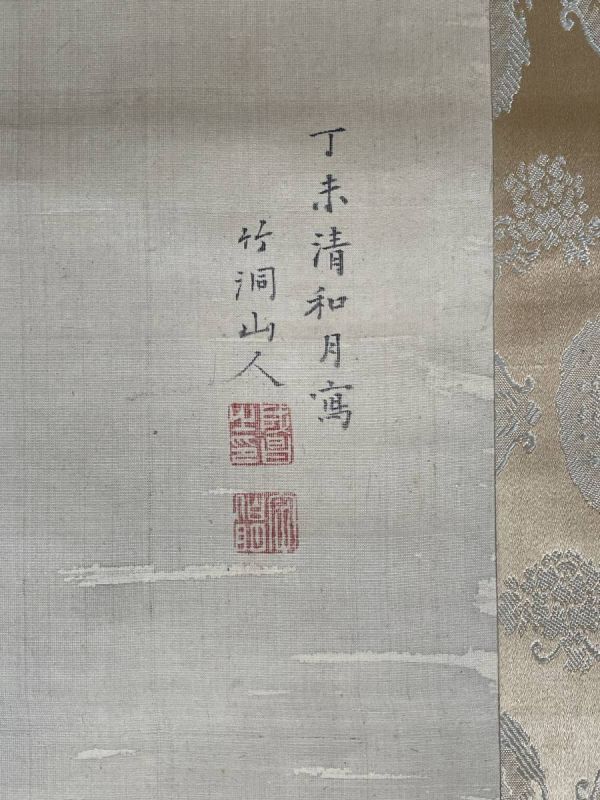 丁未清和月寫
竹洞山人